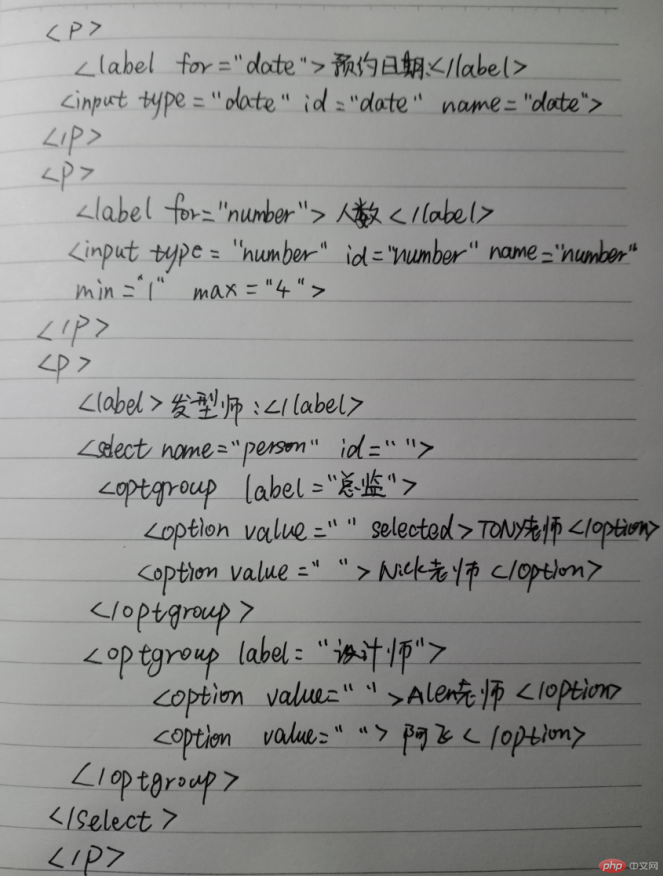 <p>
<label for="date">预约日期:</label>
<input type="date" id="date" name="date">
</p>
<p>
<label for="number">人数</label>
<input type="number" id="number" name="number"
min="1" max="4">
</p>
<p>
<label>发型师:</label>
<select name="person" id=" ">
<optgroup label="总监">
<option value=" " selected>TONY老师</option>
<option value=" ">Nick老师</option>
</optgroup>
<optgroup label="设计师">
<option value=" ">Alen老师</option>
<option value=" ">阿飞</option>
</optgroup>
</select>
</p>
php 中文网